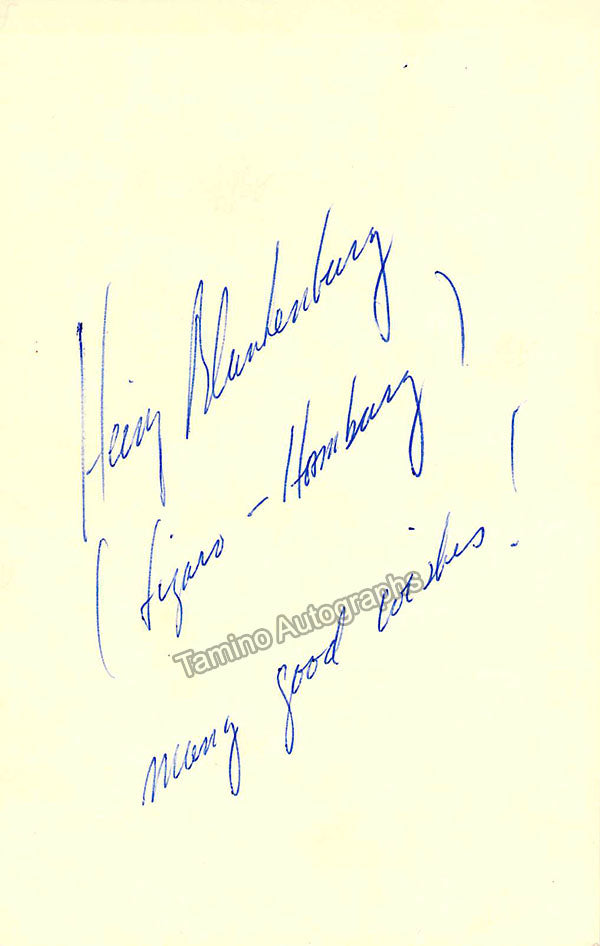 Heinz Blankenburg
(Figaro - Hamburg)
many good wishes!
Tamino Autographs